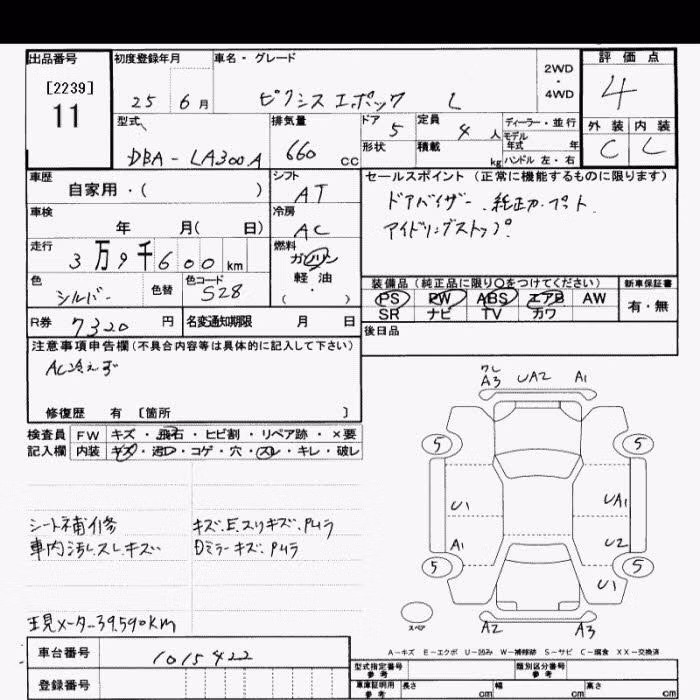 出品番号 初度登録年月 車名・グレード 評価点
[2239] 2WD
・
11 25 6月 ピクシスエポック L 4WD 4
型式 排気量 ドア 5 定員 4人 ディーラー・並行 外装 内装
DBA-LA300A 660cc 形状 積載 kg モデル年式 年 C L
ハンドル 左・右
車歴 自家用・( ) シフト AT セールスポイント(正常に機能するものに限ります)
車検 年 月( 日) 冷房 AC ドアバイザー.純正フロアマット.
走行 3万9千600km 燃料 ガソリン アイドリングストップ.
軽油
・
( )
色 シルバー 色替 色コード S28 装備品(純正品に限り○をつけてください) 新車保証書
PS PW ABS エアB AW 有・無
R券 7320円 名変通知期限 月 日 SR ナビ TV カワ
後日品
注意事項申告欄(不具合内容等は具体的に記入して下さい)
AC冷えず
修復歴 有 〔箇所 〕
検査員 FW キズ・飛石・ヒビ割・リペア跡・×要
記入欄 内装 キズ・汚れ・コゲ・穴・スレ・キレ・破レ
A3 UA2 A1
5 5
U1 UA1
A1 U2
5 5
U1
スペア A2 A3
シート補修
車内汚レスレキズ
現メーター39.590KM
A-キズ E-エクボ U-凹み W-補修跡 S-サビ C-腐食 XX-交換済
車台番号 1015422 型式指定番号 参考 類別区分番号 参考
登録番号 車庫証明用 参考 長さ cm 幅 cm 高さ cm